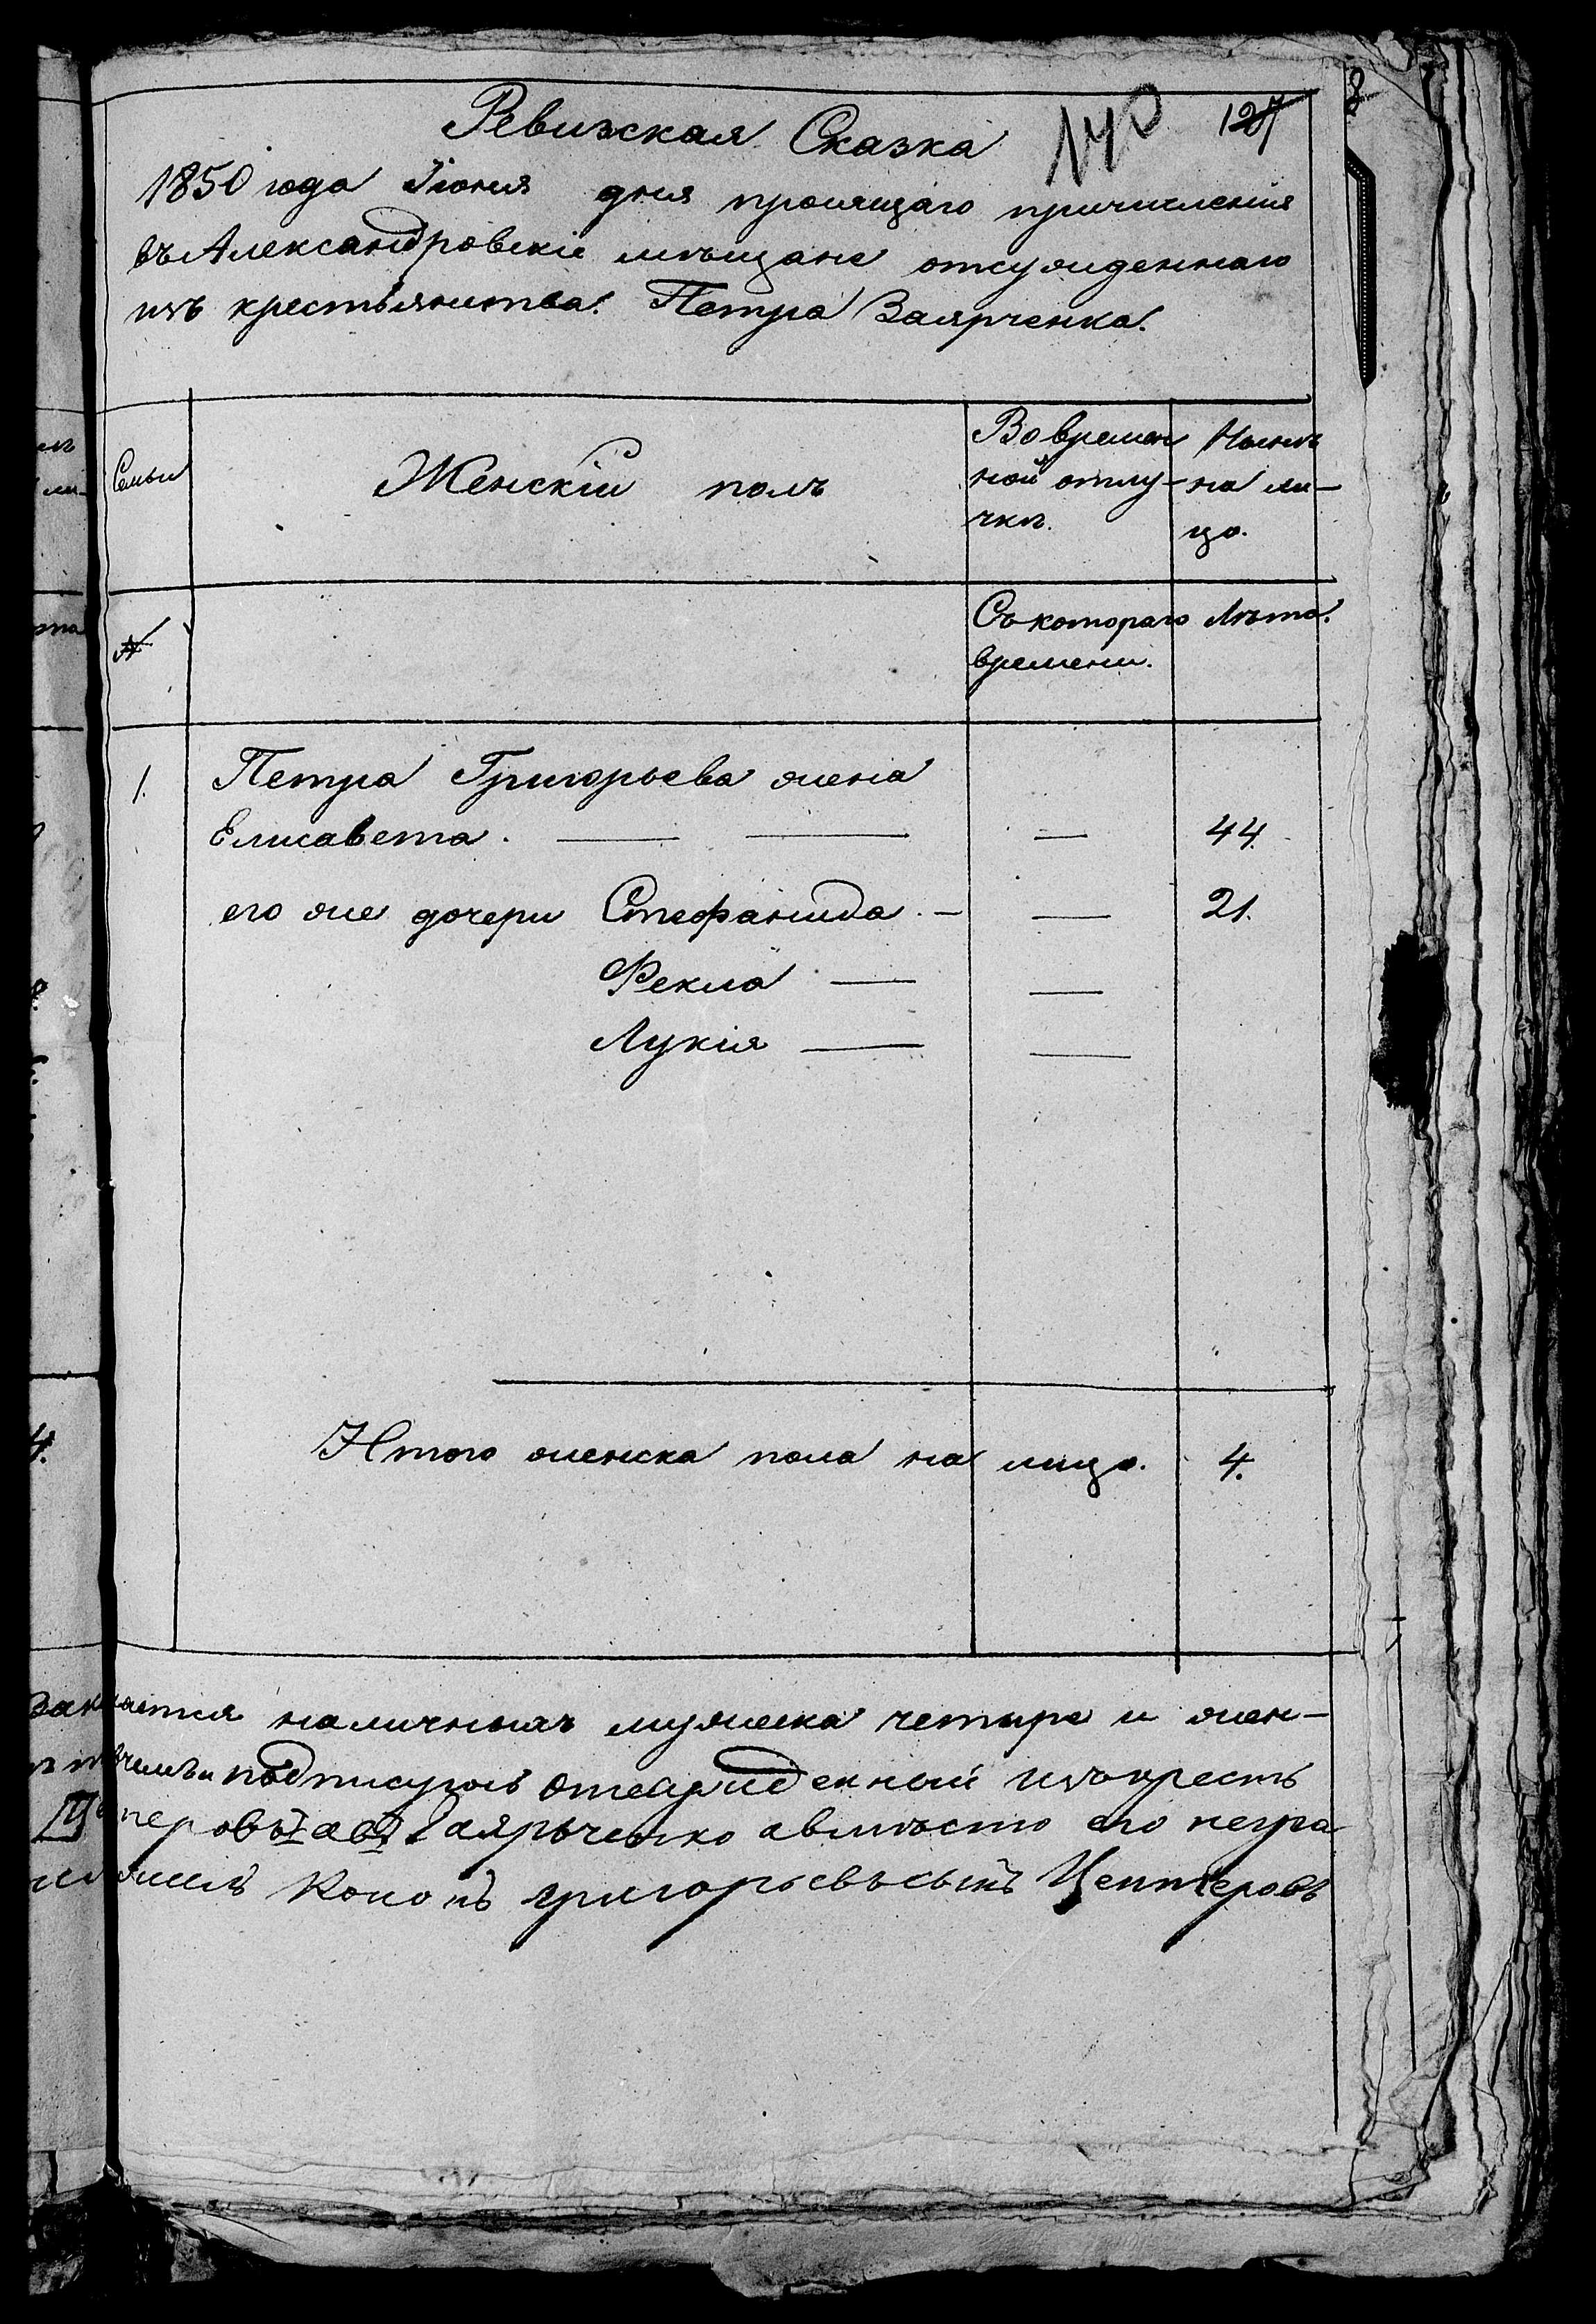 Ревизская Сказка 140 127
1850 года Іюня дня просящаго причисленія
въ Александровскіе мѣщане отсужденнаго
изъ крестьянства Петра Заярченка.
Семьи
Женскій полъ
Во времен
ной отлу-
чкѣ.
Нынѣ
на ли-
цо.
№
Съ котораго
времени.
Лѣта.
1. Петра Григорьева жена
Елисавета. — — — 44.
его же дочери Стефанида. — — 21.
Фекла — —
Лукія — —
Итого женска пола на лицо. 4.
наличныхъ мужеска четыре и жен-
подписуюсь отсужденный изъ крестъ
Заярьченко а вмѣсто его негра
Кононъ григорьевъ сынъ